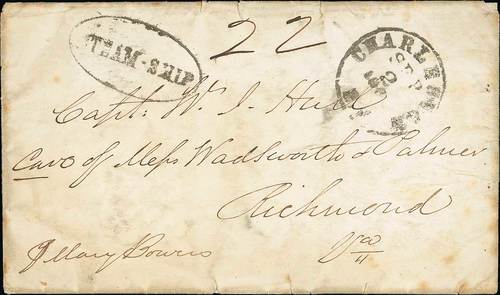 22
STEAM-SHIP
CHARLESTON
SEP
Capt. Wm. J. Hull
Care of Mess Wadsworth & Palmer
Richmond
Va
Mary Bowers